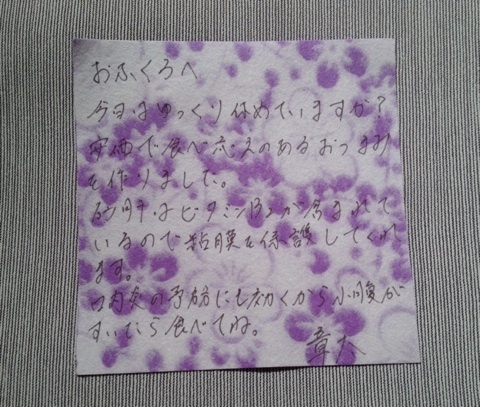 おふくろへ
今日はゆっくり休めていますか?
安価で食べ応えのあるおつまみ
を作りました。
砂肝はビタミンB2が含まれて
いるので粘膜を保護してくれ
ます。
口内炎の予防にも効くから小腹が
すいたら食べてね。
章大